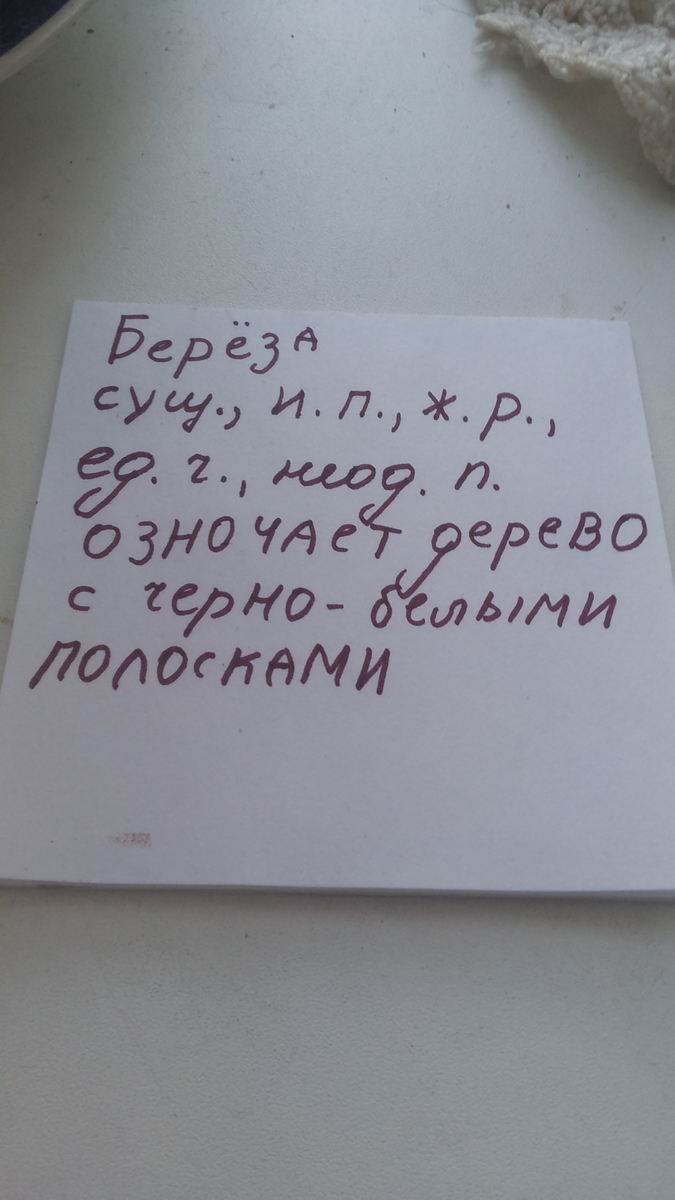 Берёза
сущ., и. п., ж. р.,
ед. ч., неод. п.
озночает дерево
с черно-белыми
полосками